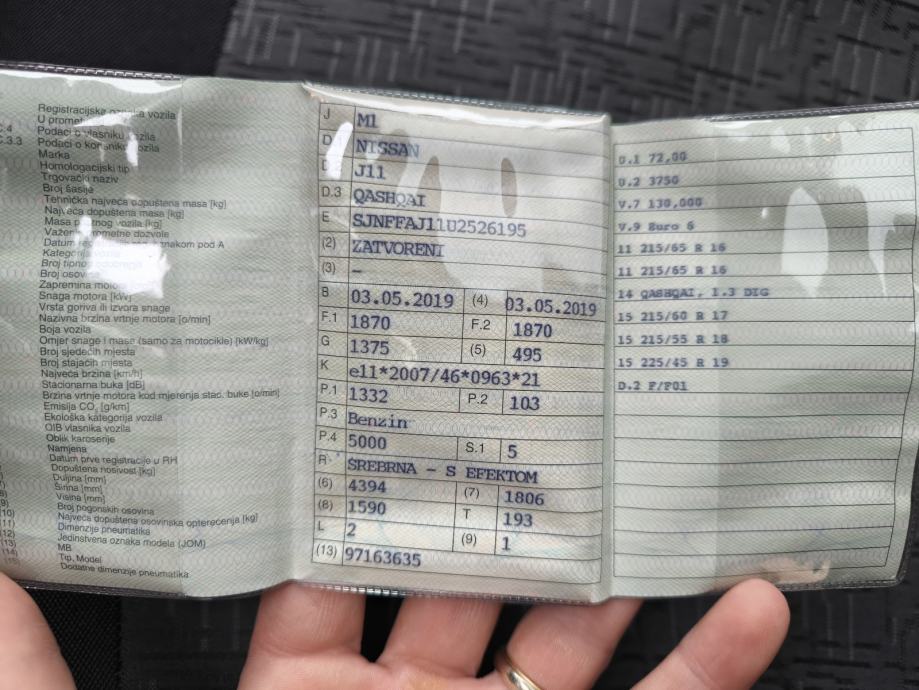 Registracijska oznaka vozila
U
C.4 Podaci o vlasniku vozila
C.3.3 Podaci o korisniku vozila
Marka
Homologacijski tip
Trgovački naziv
Broj šasije
Tehnička najveća dopuštena masa [kg]
Najveća dopuštena masa [kg]
Masa praznog vozila [kg]
prometne dozvole
Datum znakom pod A
Kategorija vozila
Broj
Broj
Zapremina
Snaga motora [kW]
Vrsta goriva ili izvora snage
Nazivna brzina vrtnje motora [o/min]
Boja vozila
Omjer snage i mase (samo za motocikle) [kW/kg]
Broj sjedećih mjesta
Broj stajaćih mjesta
Najveća brzina [km/h]
Stacionarna buka [dB]
Brzina vrtnje motora kod mjerenja stac. buke [o/min]
Emisija CO2 [g/km]
Ekološka kategorija vozila
OIB vlasnika vozila
Oblik karoserije
Namjena
Datum prve registracije u RH
Dopuštena nosivost [kg]
Duljina [mm]
Širina [mm]
Visina [mm]
Broj pogonskih osovina
(10) Najveća dopuštena osovinska opterećenja [kg]
(11) Dimenzije pneumatika
(12) Jedinstvena oznaka modela (JOM)
(13) MB
(14) Tip, Model
Dodatne dimenzije pneumatika
J M1
D NISSAN
J11
D.3 QASHQAI
E SJNFFAJ11U2526195
(2) ZATVORENI
(3) –
B 03.05.2019 (4) 03.05.2019
F.1 1870 F.2 1870
G 1375 (5) 495
K e11*2007/46*0963*21
P.1 1332 P.2 103
P.3 Benzin
P.4 5000 S.1 5
R SREBRNA - S EFEKTOM
(6) 4394 (7) 1806
(8) 1590 T 193
L 2 (9) 1
(13) 97163635
U.1 72,00
U.2 3750
V.7 130,000
V.9 Euro 6
11 215/65 R 16
11 215/65 R 16
14 QASHQAI, 1.3 DIG
15 215/60 R 17
15 215/55 R 18
15 225/45 R 19
D.2 F/F01